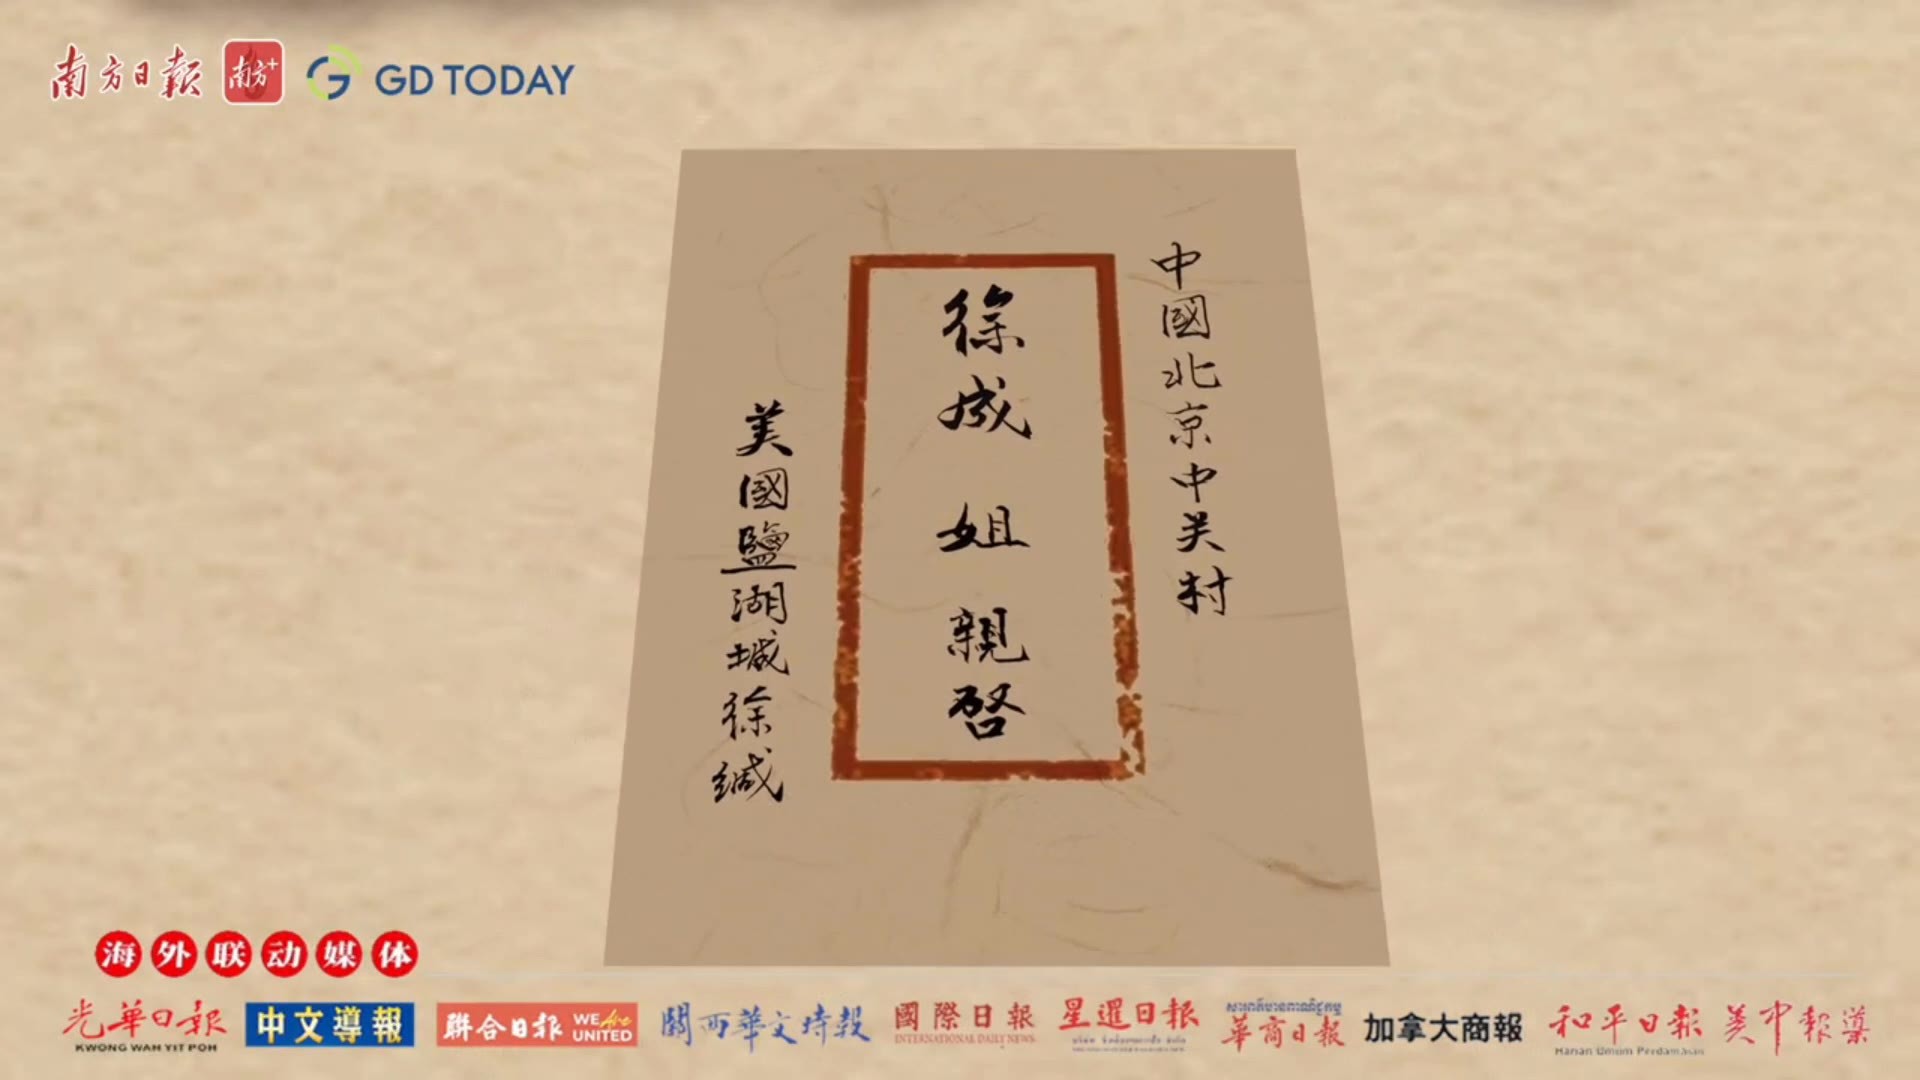 南方日报
南方+
GD TODAY
中國北京中关村
徐成 姐 親啓
美國鹽湖城徐缄
海外联动媒体
光華日報
KWONG WAH YIT POH
中文導報
聯合日報
WE Are UNITED
關西華文時報
國際日報
INTERNATIONAL DAILY NEWS
星暹日報
華商日報
加拿大商報
和平日報
Harian Umum Perdamaian
美中報導